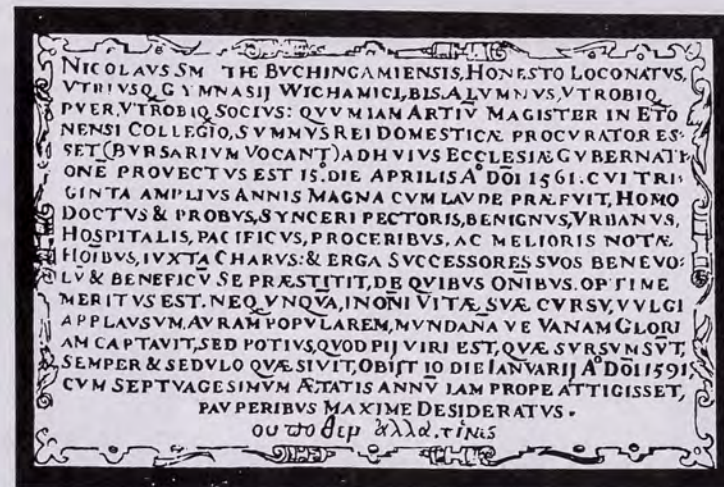 NICOLAVS SM THE BVCHINGAMIENSIS, HONESTO LOCO NATVS,
VTRIVSQ GYMNASIJ WICHAMICI, BIS ALVMNVS, VTROBIQ
PVER, VTROBIQ SOCIVS: QVVM IAM ARTIV̄ MAGISTER IN ETO
NENSI COLLEGIO, SVMMVS REI DOMESTICÆ PROCVRATOR ES-
SET (BVRSARIVM VOCANT) AD HVIVS ECCLESIÆ GVBERNATI-
ONĒ PROVECTVS EST 15º. DIE APRILIS Aº DŌI 1561. CVI TRI-
GINTA AMPLIVS ANNIS MAGNA CVM LAVDE PRÆFVIT, HOMO
DOCTVS & PROBVS, SYNCERI PECTORIS, BENIGNVS, VRBANVS,
HOSPITALIS, PACIFICVS, PROCERIBVS, AC MELIORIS NOTÆ
HOĪBVS, IVXTA CHARVS: & ERGA SVCCESSORES SVOS BENEVO-
LV̄ & BENEFICV̄ SE PRÆSTITIT, DE QVIBVS ONĪBVS. OPTIME
MERITVS EST. NEQ VNQVĀ, IN ONĪ VITÆ SVÆ CVRSV, VVLGI
APPLAVSVM, AVRAM POPVLAREM, MVNDANA VE VANAM GLORI
AM CAPTAVIT, SED POTIVS, QVOD PIJ VIRI EST, QVÆ SVRSVM SV̄T,
SEMPER & SEDVLO QVÆSIVIT, OBIJT 10 DIE IANVARIJ Aº DŌI 1591,
CVM SEPTVAGESIMVM ÆTATIS ANNV̄ IAM PROPE ATTIGISSET,
PAVPERIBVS MAXIME DESIDERATVS.